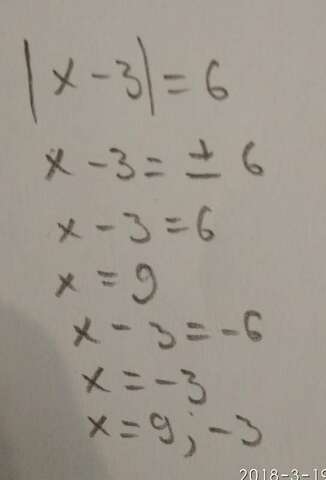 |x - 3| = 6
x - 3 = ± 6
x - 3 = 6
x = 9
x - 3 = -6
x = -3
x = 9; -3
2018-3-19